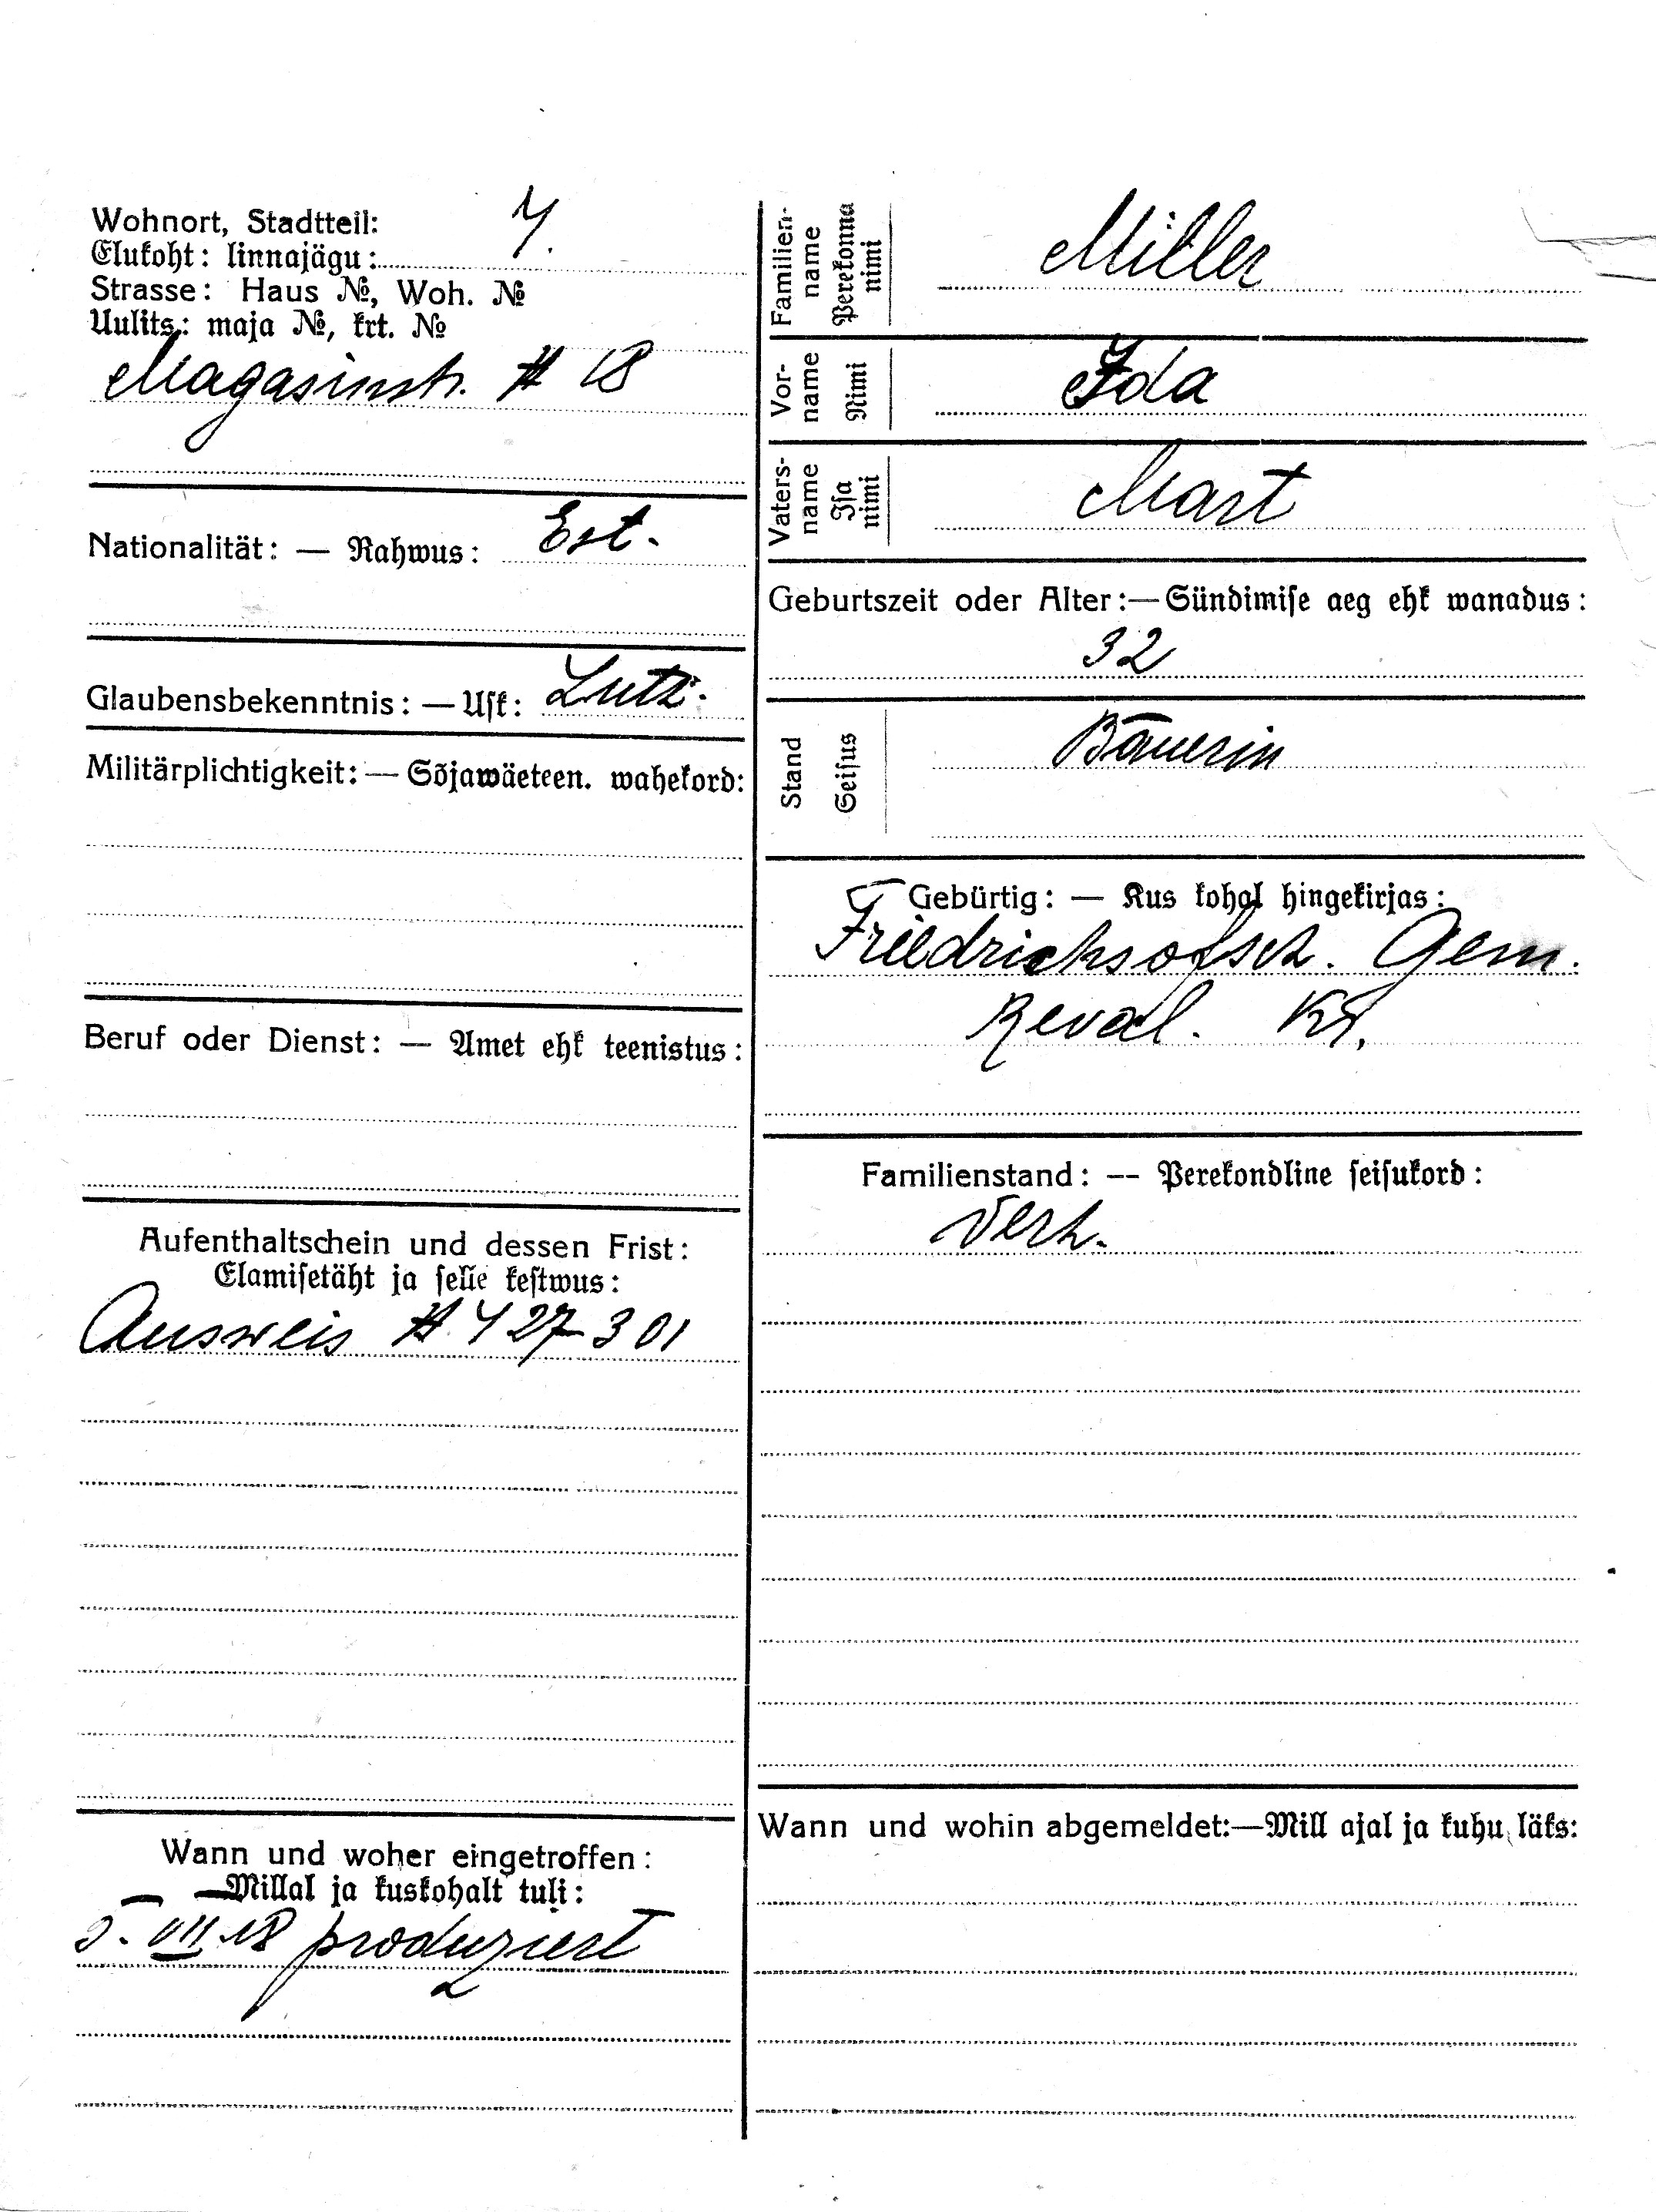 Wohnort, Stadtteil: 4.
Elukoht: linnajägu:
Strasse: Haus №, Woh. №
Uulits: maja №, krt. №
Magasinstr. # 18
Nationalität: — Rahwus: Est.
Glaubensbekenntnis: — Usk: Luth.
Militärplichtigkeit: — Sõjawäeteen. wahekord:
Beruf oder Dienst: — Amet ehk teenistus:
Aufenthaltschein und dessen Frist:
Elamisetäht ja selle kestwus:
Ausweis # 427301
Wann und woher eingetroffen:
—Millal ja kuskohalt tuli:
5. VII. 18 produziert
Familien-
name
Perekonna
nimi
Miller
Vor-
name
Nimi
Ida
Vaters-
name
Isa
nimi
Mart
Geburtszeit oder Alter:—Sündimise aeg ehk wanadus:
32
Stand
Seisus
Bäuerin
Gebürtig: — Kus kohal hingekirjas:
Gem.
Reval. Kr.
Familienstand: -- Perekondline seisukord:
Verh.
Wann und wohin abgemeldet:—Mill ajal ja kuhu läks: